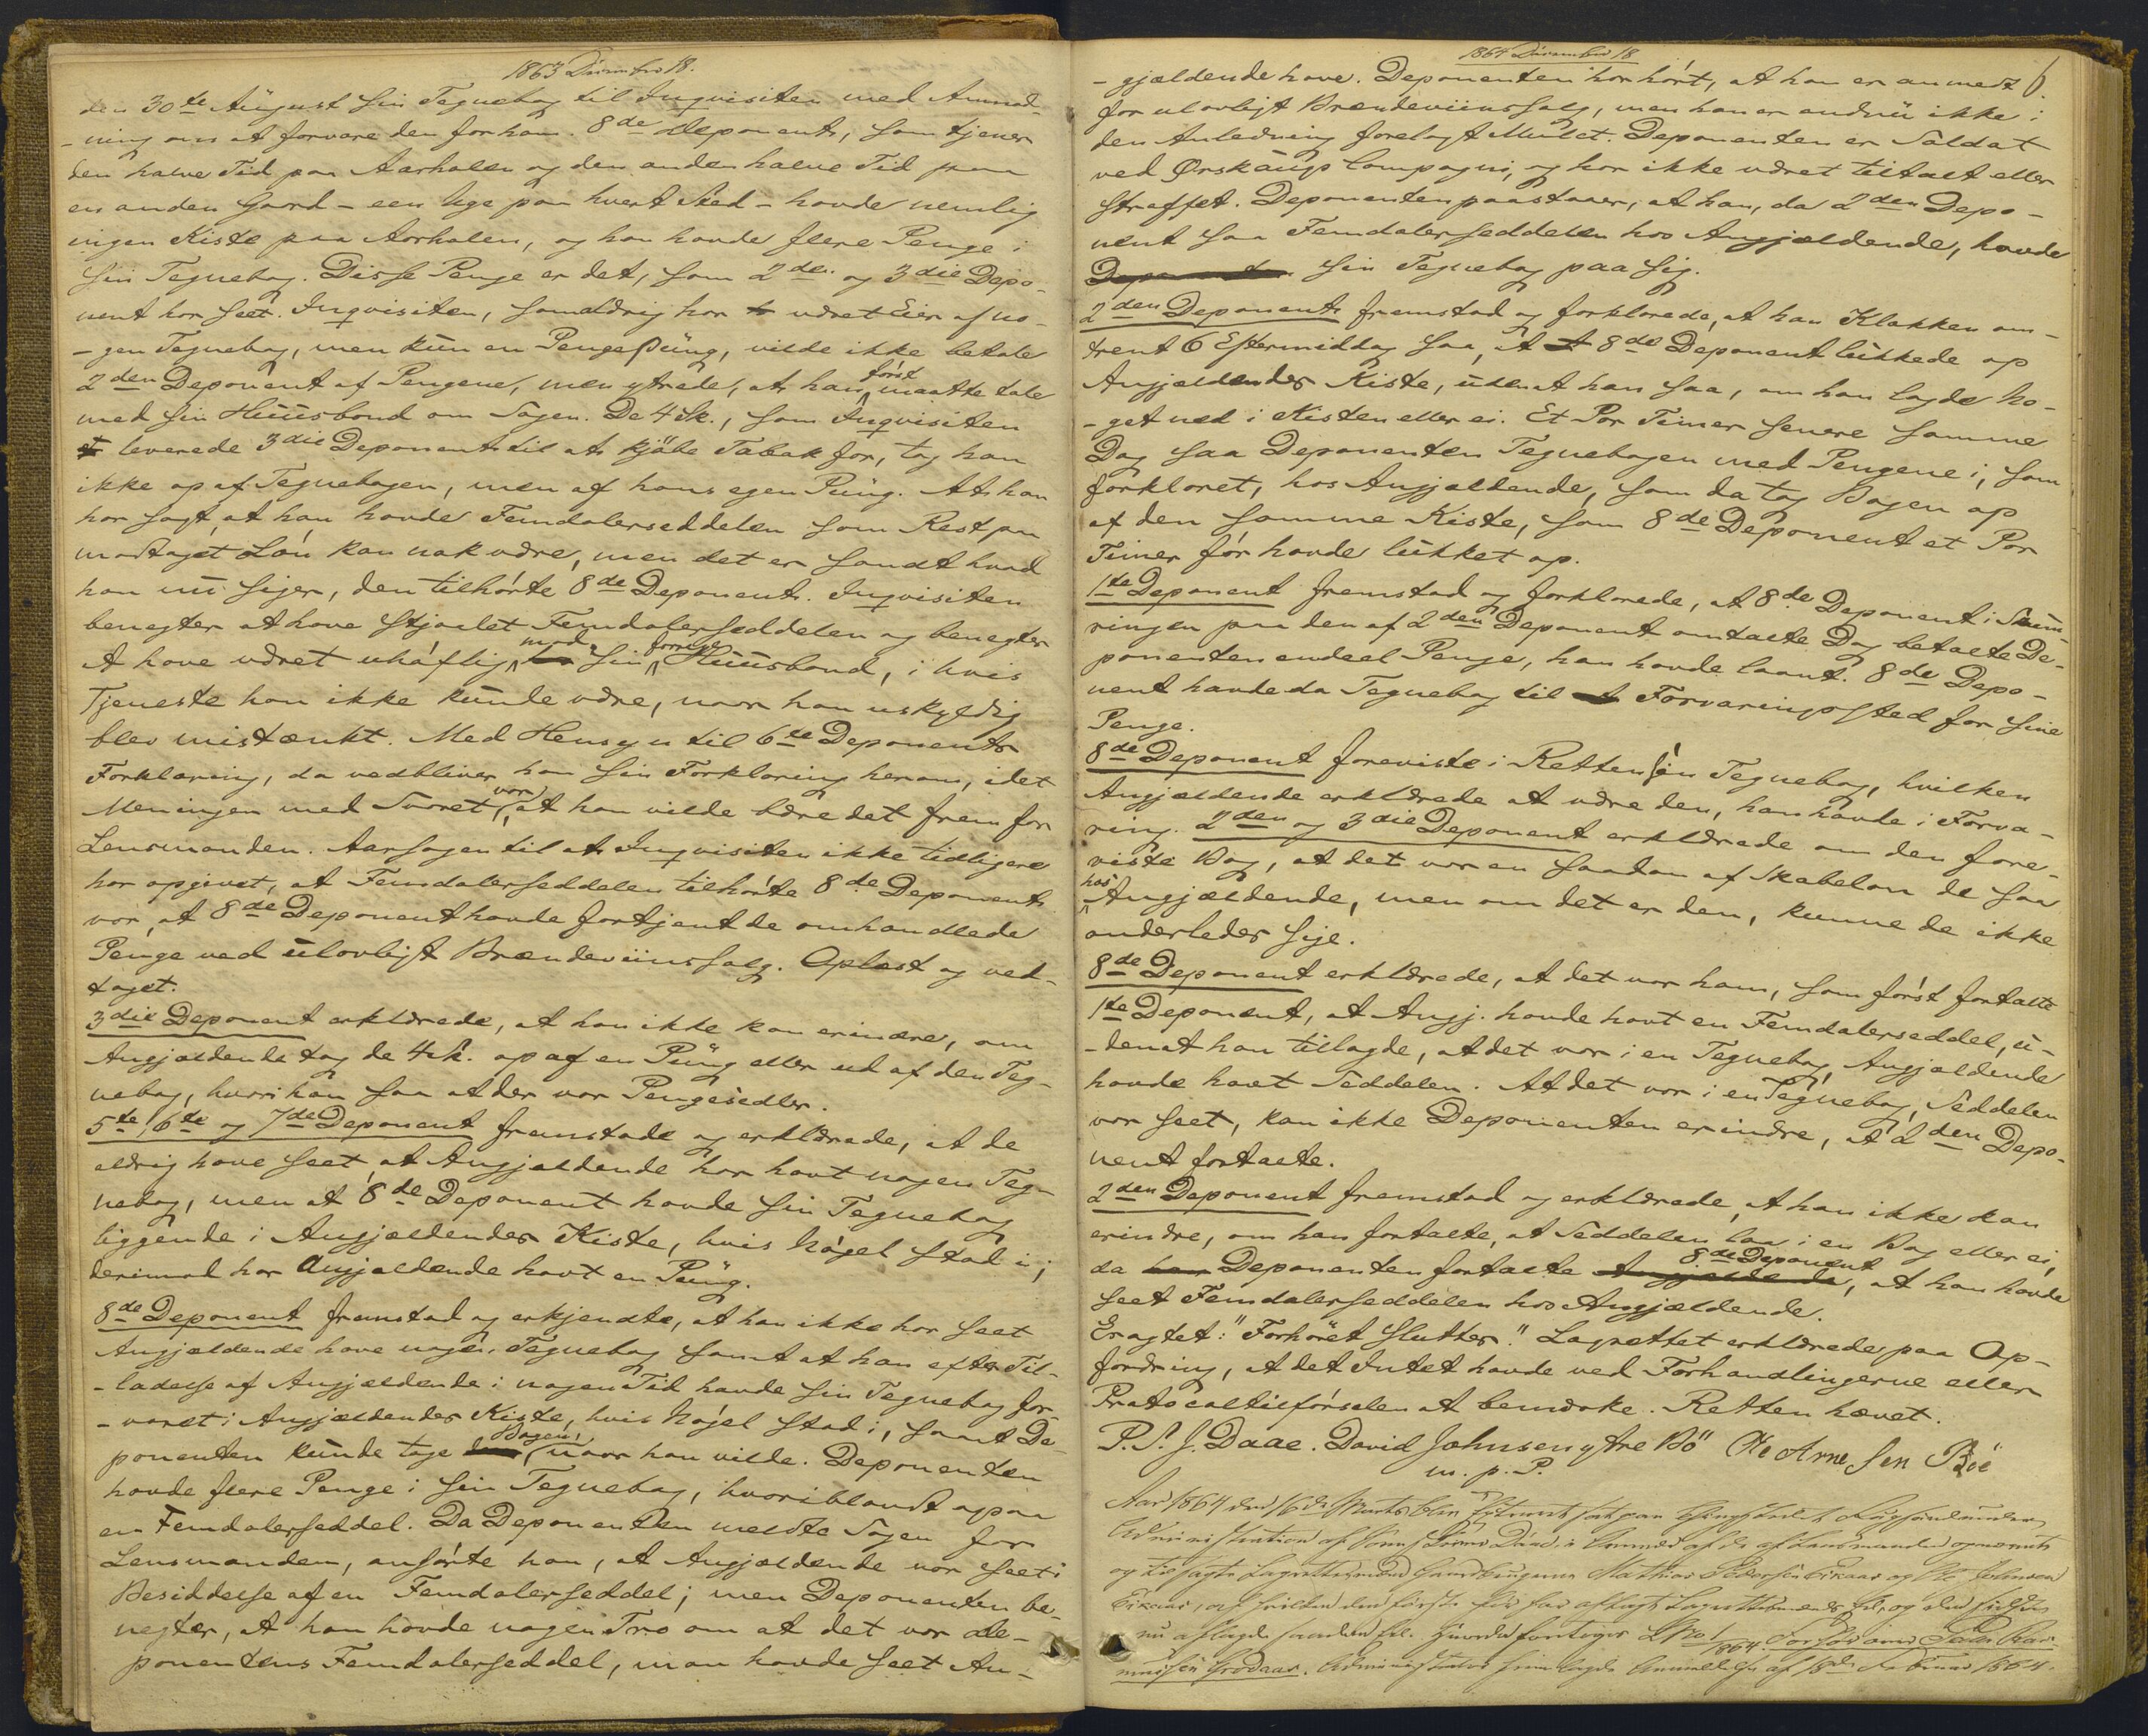 1863 December 18.
den 30te August sin Tegnebog til Inqvisiten med Anmod-
-ning om at forvare den for ham. 8de Deponent, som tjener
den halve Tid paa Aarhalen og den anden halve Tid paa
en anden Gaard - een Uge paa hvert Sted - havde nemlig
ingen Kiste paa Aarhalen, og han havde flere Penge i
sin Tegnebog. Disse Penge er det, som 2den og 3die Depo-
nent har seet. Inqvisiten, som aldrig har været Eier af no-
-gen Tegnebog, men kun en Pengepung, vilde ikke betale
2den Deponent af Pengene, men ytrede, at han først maatte tale
med sin Huusbond om Sagen. De 4 Sk., som Inqvisiten
leverede 3die Deponent til at kjöbe Tabak for, tog han
ikke op af Tegnebogen, men af hans egen Pung. At han
har sagt, at han havde Femdalerseddelen som Rest paa
modtaget Lön kan nok være, men det er sandt hvad
han nu siger, den tilhörte 8de Deponent. Inqvisiten
benegter at have stjaalet Femdalerseddelen og benegter
at have været uhöflig mod sin forrige Huusbond, i hvis
Tjeneste han ikke kunde være, naar han uskyldig
blev mistænkt. Med Hensyn til 6te Deponents
Forklaring, da vedbliver han sin Forklaring herom, idet
Meningen med Svaret var, at han vilde bære det frem for
Lensmanden. Aarsagen til at Inqvisiten ikke tidligere
har opgivet, at Femdalerseddelen tilhörte 8de Deponent
var, at 8de Deponent havde fortjent de omhandlede
Penge ved ulovligt Brændeviinssalg. Oplæst og ved-
taget.
3die Deponent erklærede, at han ikke kan erindre, om
Angjældende tog de 4 Sk. op af en Pung eller ud af den Teg-
nebog, hvori han saa at der var Pengesedler.
5te, 6te og 7de Deponent fremstode og erklærede, at de
aldrig have seet, at Angjældende har havt nogen Teg-
nebog, men at 8de Deponent havde sin Tegnebog
liggende i Angjældendes Kiste, hvis Nögel stod i;
derimod har Angjældende havt en Pung.
8de Deponent fremstod og erkjendte, at han ikke har seet
Angjældende have nogen Tegnebog samt at han efter Til-
-ladelse af Angjældende i nogen Tid havde sin Tegnebog for-
-varet i Angjældendes Kiste, hvis Nögel stod i, samt De-
ponenten kunde tage Bogen, naar han vilde. Deponenten
havde flere Penge i sin Tegnebog, hvoriblandt ogsaa
en Femdalerseddel. Da Deponenten meldte Sagen for
Lensmanden, anförte han, at Angjældende var seet i
Besiddelse af en Femdalerseddel; men Deponenten be-
negter, at han havde nogen Tro om at det var De-
ponentens Femdalerseddel, man havde seet An-
1864 December 18
6.
-gjældende have. Deponenten har hört, at han er anmeldt
for ulovligt Brændeviinssalg, men han er endnu ikke i
den Anledning forelagt Mulct. Deponenten er Soldat
ved Ørskougs Compagni, og har ikke været tiltalt eller
straffet. Deponenten paastaaer, at han, da 2den Depo-
nent saa Femdalerseddelen hos Angjældende, havde
Deponenten sin Tegnebog paa sig.
2den Deponent fremstod og forklarede, at han Klokken om-
trent 6 Eftermiddag saa, at 8de Deponent lukkede op
Angjældendes Kiste, uden at han saa, om han lagde no-
-get ned i Kisten eller ei. Et Par Timer senere samme
Dag saa Deponenten Tegnebogen med Pengene i, som
forklaret, hos Angjældende, som da tog Bogen op
af den samme Kiste, som 8de Deponent et Par
Timer för havde lukket op.
1ste Deponent fremstod og forklarede, at 8de Deponent i Skum-
ringen paa den af 2den Deponent omtalte Dag betalte De-
ponenten endeel Penge, han havde laant. 8de Depo-
nent havde da Tegnebog til Forvaringssted for sine
Penge.
8de Deponent foreviste i Retten sin Tegnebog, hvilken
Angjældende erklærede at være den, han havde i Forva-
ring. 2den og 3die Deponent erklærede om den fore-
viste Bog, at det var en saadan af Skabelon de saa
hos Angjældende, men om det er den, kunne de ikke
anderledes sige.
8de Deponent erklærede, at det var ham, som först fortalte
1ste Deponent, at Angj. havde havt en Femdalerseddel, u-
-den at han tillagde, at det var i en Tegnebog Angjældende
havde havt Seddelen. At det var i en Tegnebog, Seddelen
var seet, kan ikke Deponenten erindre, at 2den Depo-
nent fortalte.
2den Deponent fremstod og erklærede, at han ikke kan
erindre, om han fortalte, at Seddelen laa i en Bog eller ei,
da Deponenten fortalte Angjældende 8de Deponent, at han havde
seet Femdalerseddelen hos Angjældende.
Eragtet: "Forhöret sluttes." Lagrettet erklærede paa Op-
fordring, at det Intet havde ved Forhandlingerne eller
Protocoltilförselen at bemærke. Retten hævet.
P. S. J. Daae. David Johnsen ytre Bö Ole Arne Sen Böe
m. p. P.
Aar 1864 den 16de Marts blev Extraret sat paa
Administration af Daae, i Overvær af de af Lensmanden opnævnte
og tilsagte Lagrettesmænd Gaardbrugerne Mathias Pedersen Eikaas og Johnsen
Eikaas, af hvilke den förste för har aflagt Lagrettesmands Ed, og den sidste
nu aflagde saadan Ed. Hvorda foretoges L No 1/1864. Forhör imod Peder Ras-
mussen Grodaas. Administrator fremlagde Anmeldelse af 18de Februar 1864.